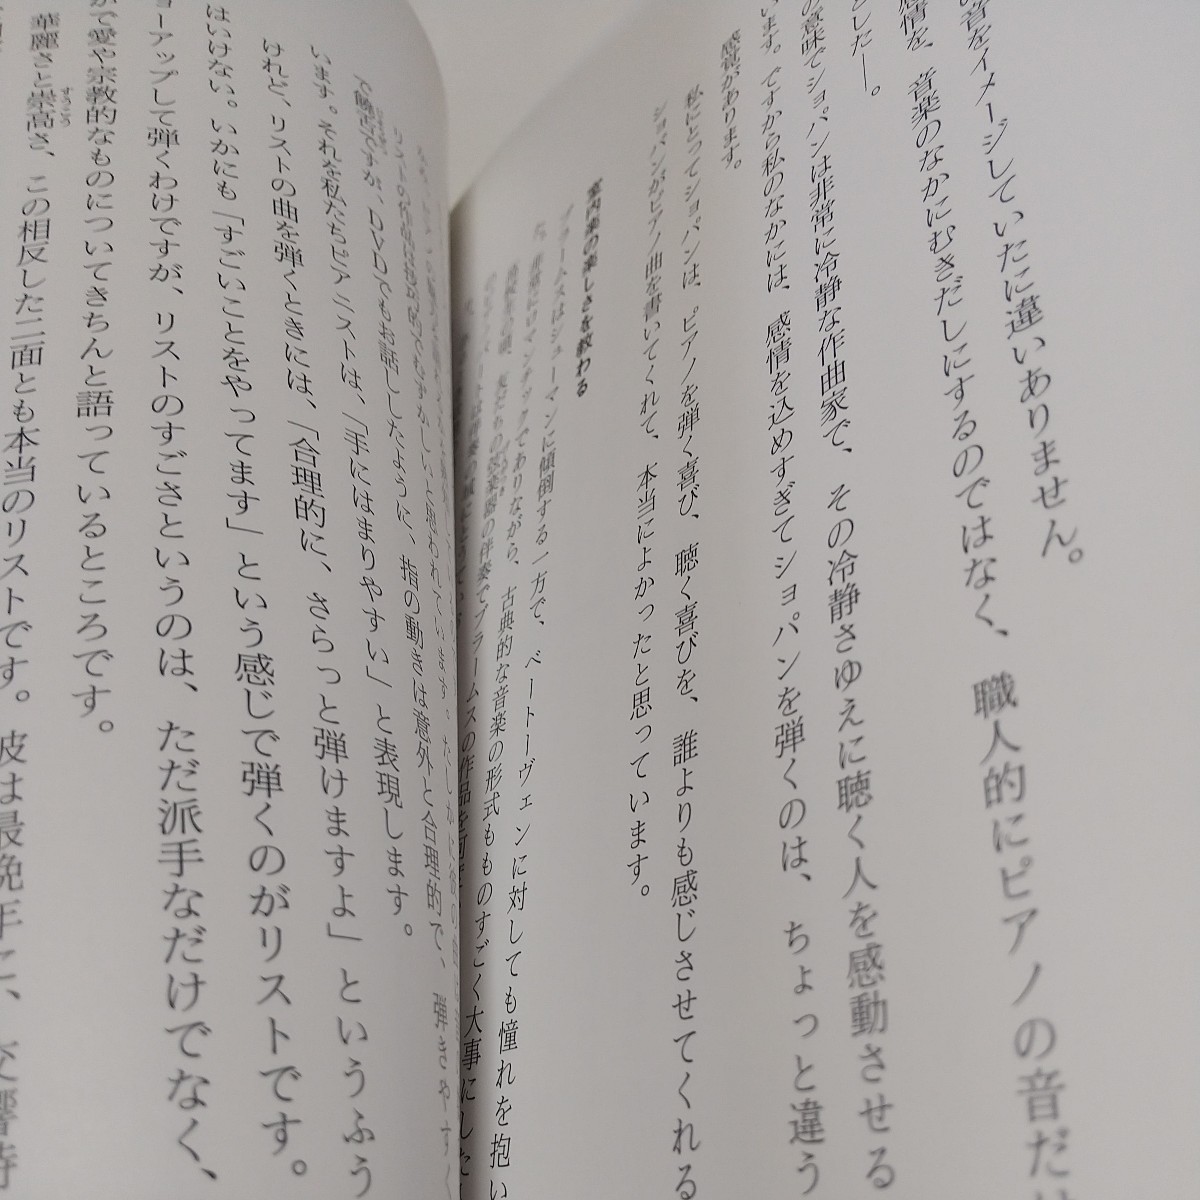 い音をイメージしていたに違いありません。
感情を、音楽のなかにむきだしにするのではなく、職人的にピアノの音だ
とした――。
の意味でショパンは非常に冷静な作曲家で、その冷静さゆえに聴く人を感動させる
います。ですから私のなかには、感情を込めすぎてショパンを弾くのは、ちょっと違う
感覚があります。
私にとってショパンは、ピアノを弾く喜び、聴く喜びを、誰よりも感じさせてくれる
ショパンがピアノ曲を書いてくれて、本当によかったと思っています。
室内楽の楽しさを教わる
ブラームスはシューマンに傾倒する一方で、ベートーヴェンに対しても憧れを抱い
ロマンチックでありながら、古典的な音楽の形式もものすごく大事にした
弦楽器の伴奏でブラームスの作品を
リストの作品は技巧的でむずかしいと思われています。たしかに
で饒舌ですが、DVDでもお話ししたように、指の動きは意外と合理的で、弾きやすく
います。それを私たちピアニストは、「手にはまりやすい」と表現します。
けれど、リストの曲を弾くときには、「合理的に、さらっと弾けますよ」というふう
はいけない。いかにも「すごいことをやってます」という感じで弾くのがリストです。
ョーアップして弾くわけですが、リストのすごさというのは、ただ派手なだけでなく、
で愛や宗教的なものについてきちんと語っているところです。
華麗さと崇高さ、この相反した二面とも本当のリストです。彼は最晩年に、交響詩